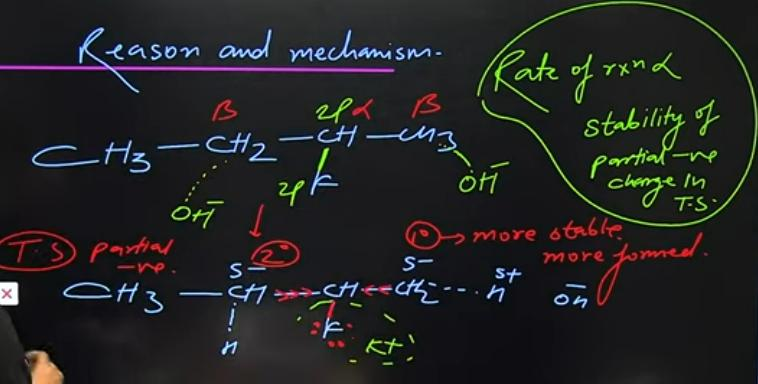 Reason and mechanism.
Rate of rxn α
stability of
partial -ve
charge in
T.S.
β 2p α β
CH3 — CH2 — CH — CH3
2p F
OH⁻ OH⁻
T.S partial
-ve.
2° 1° → more stable
more formed.
S⁻ S⁻ S+
CH3 — CH — CH — CH2 --- H ŌH
H F K+